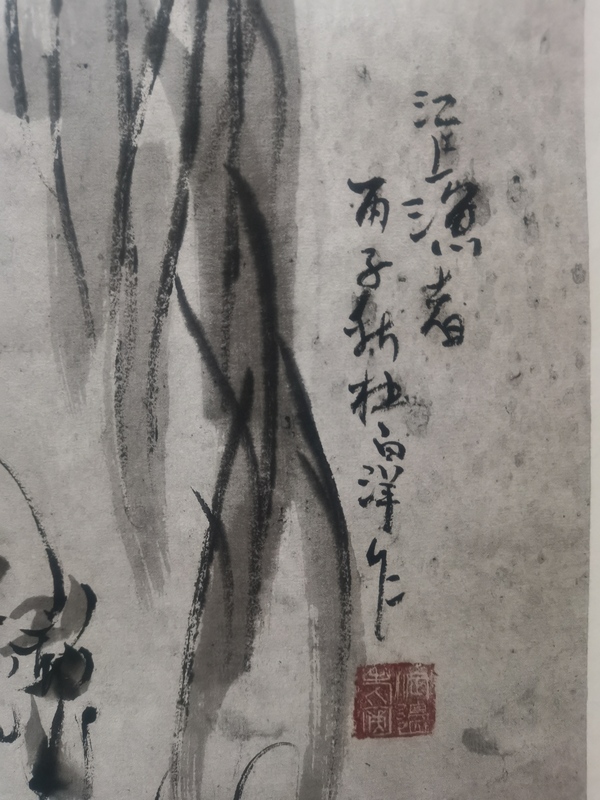 江上漁者
丙子秋杜白洋乍